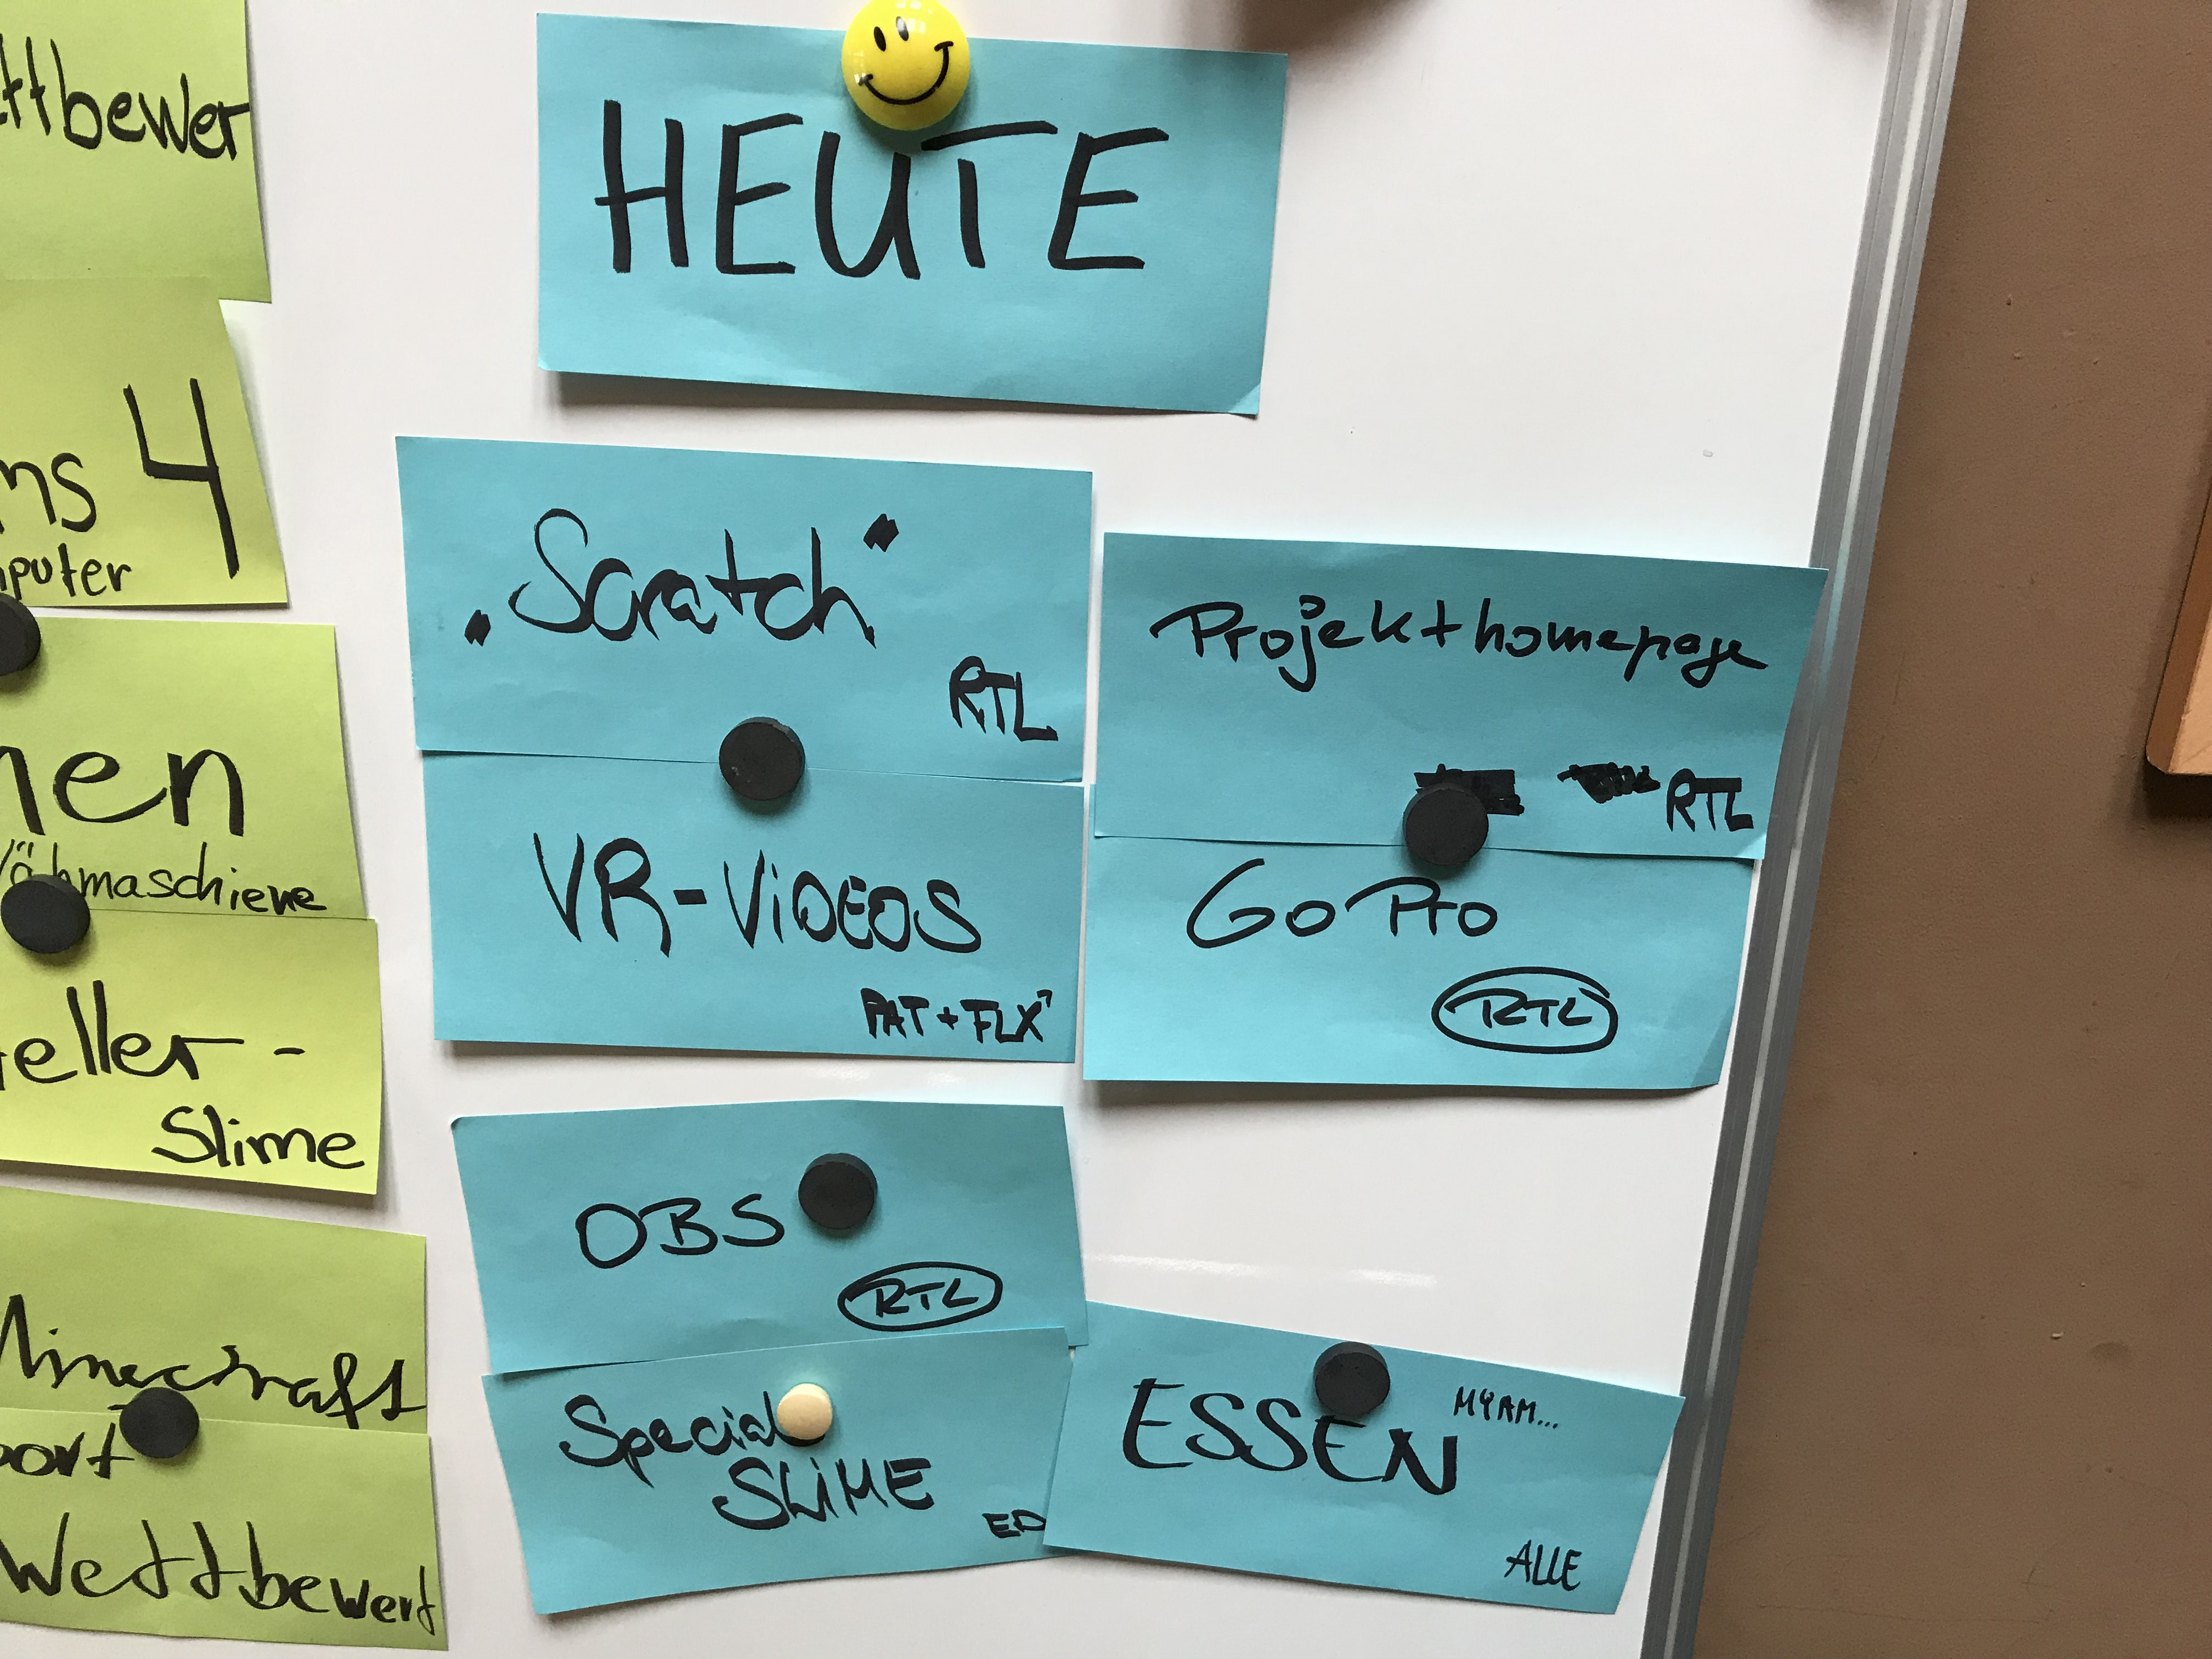 ttbewer
ns 4
puter
nen
Nähmaschiene
eller-
Slime
Minecraft
port
Wettbewerb
HEUTE
„Scratch"
RTL
VR-ViDEOS
PAT + FLX
Projekthomepage
RTL
GoPro
RTL
OBS
RTL
Special
SLiME
ED
ESSEN MYAM...
ALLE